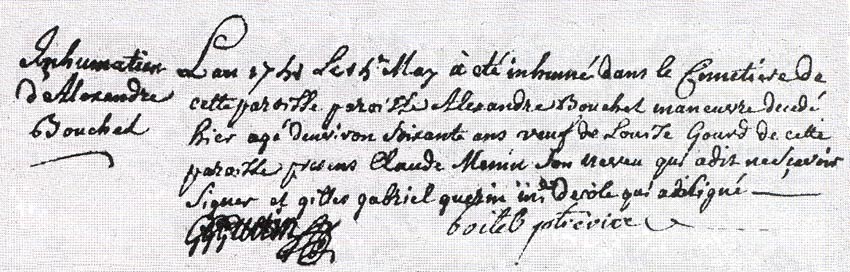 Inhumation
d'Alexandre
Bouchet
L'an 1741 Le 14e May à été inhumé dans le Cemetiere de
cette paroisse paroisse Alexandre Bouchet maneuvre decedé
hier agé denviron Soixante ans veuf de Louise Gourd de cette
paroisse presens Claude Menin Son neveu qui adit ne sçavoir
Signer et gilles gabriel guerin d'ecole qui a Signé
GgGuerin
boiteb ptre vice